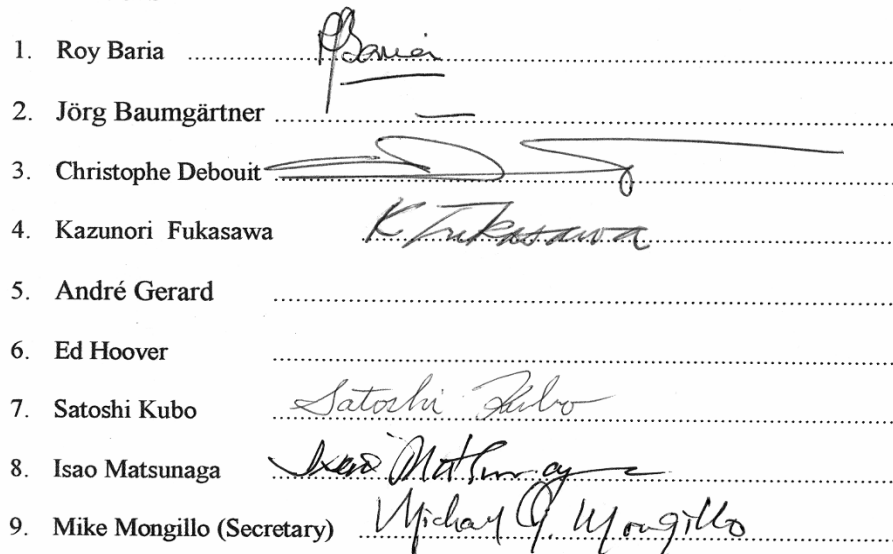 1. Roy Baria RBaria
2. Jörg Baumgärtner
3. Christophe Debouit
4. Kazunori Fukasawa K Fukasawa
5. André Gerard
6. Ed Hoover
7. Satoshi Kubo Satoshi Kubo
8. Isao Matsunaga Isao Matsunaga
9. Mike Mongillo (Secretary) Michael J. Mongillo